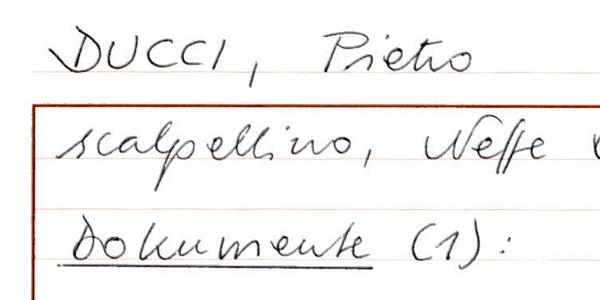 DUCCI, Pietro
scalpellino, Neffe
Dokumente (1):